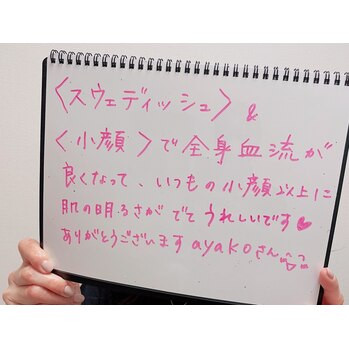 〈スウェディッシュ〉&
〈小顔〉で全身血流が
良くなって、いつもの小顔以上に
肌の明るさがでてうれしいです♥
ありがとうございます ayakoさん